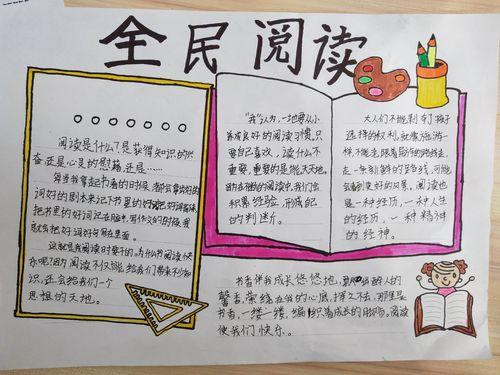 全民阅读
阅读是什么？是获得知识的兴
奋还是心灵的慰藉，还是……
每当我拿起书看的时候，都会拿好的
词好的剧本来记下书里的好词
把书里的好词记在脑中，写作文的时候我
就会把好词好句写在里面。
这就是我阅读时要干的。为什么书阅读快
乐呢？因为阅读不仅能给我们带来个知
识，还会给我们一个
思想的天地。
“我”认为，一地要从小
养成良好的阅读习惯。只
要自己喜欢，读什么不
重要，重要的是能天天地。
在阅读中，我们会
积累经验，形成自己
的判断。
大人们不能剥夺孩子
选择的权利。就像旅游一
样，不能光跟着前
走一条别样的路线，可能
会看到更好的风景。阅读也
是一种经历，一种人生
的经历，一种精神
的经神。
书香伴我成长悠悠地，醉人的
馨香，萦绕在我的心底，挥之不去，那里是
书香，一缕一缕，编织着成长的脚印。阅读
使我们快乐。